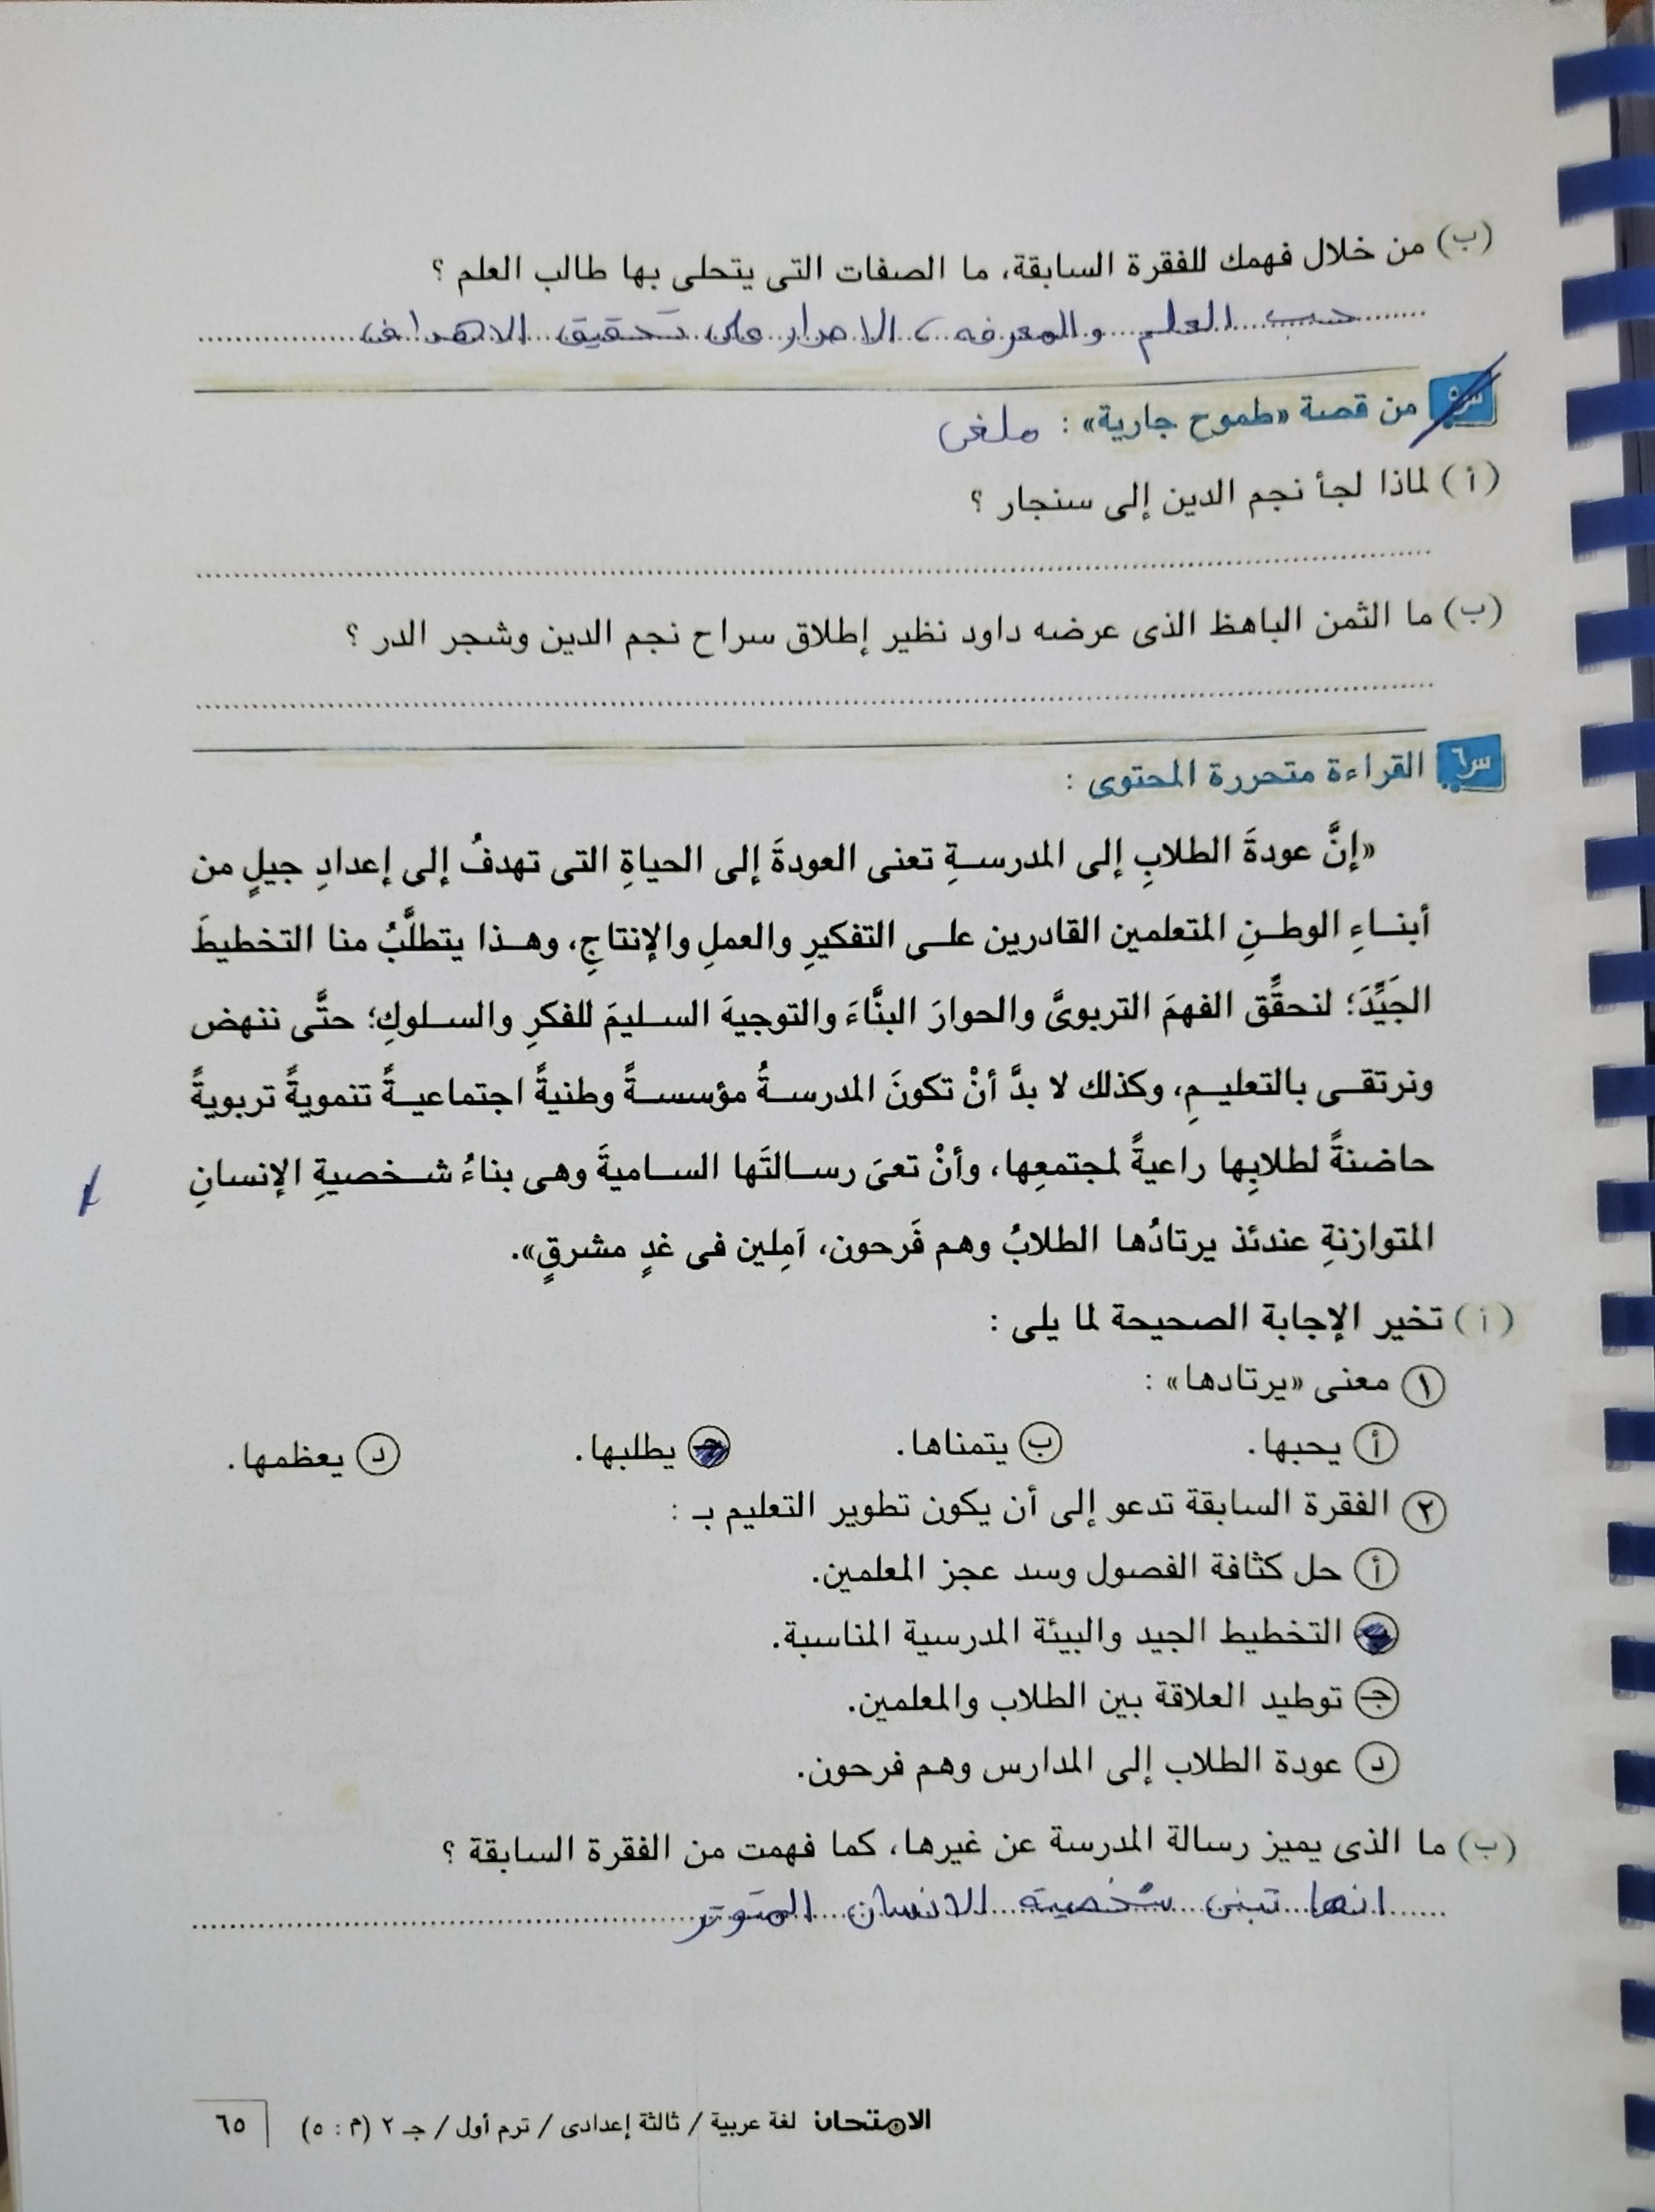 (ب) من خلال فهمك للفقرة السابقة، ما الصفات التى يتحلى بها طالب العلم ؟
حب العلم والمعرفه، الاصرار على تحقيق الاهداف
س٥ من قصة «طموح جارية» : ملغى
(أ) لماذا لجأ نجم الدين إلى سنجار ؟
(ب) ما الثمن الباهظ الذى عرضه داود نظير إطلاق سراح نجم الدين وشجر الدر ؟
س٦ القراءة متحررة المحتوى :
«إنَّ عودةَ الطلابِ إلى المدرسـةِ تعنى العودةَ إلى الحياةِ التى تهدفُ إلى إعدادِ جيلٍ من
أبنـاءِ الوطـنِ المتعلمين القادرين علـى التفكيرِ والعملِ والإنتاجِ، وهـذا يتطلَّبُ منا التخطيطَ
الجَيِّدَ؛ لنحقِّق الفهمَ التربوىَّ والحوارَ البنَّاءَ والتوجيهَ السـليمَ للفكرِ والسـلوكِ؛ حتَّى ننهض
ونرتقـى بالتعليـمِ، وكذلك لا بدَّ أنْ تكونَ المدرسـةُ مؤسسـةً وطنيةً اجتماعيـةً تنمويةً تربويةً
حاضنةً لطلابِها راعيةً لمجتمعِها، وأنْ تعىَ رسـالتَها السـاميةَ وهى بناءُ شـخصيةِ الإنسانِ
المتوازنةِ عندئذ يرتادُها الطلابُ وهم فَرحون، آمِلين فى غدٍ مشرقٍ».
(أ) تخير الإجابة الصحيحة لما يلى :
١ معنى «يرتادها» :
أ يحبها. ب يتمناها. جـ يطلبها. د يعظمها.
٢ الفقرة السابقة تدعو إلى أن يكون تطوير التعليم بـ :
أ حل كثافة الفصول وسد عجز المعلمين.
ب التخطيط الجيد والبيئة المدرسية المناسبة.
جـ توطيد العلاقة بين الطلاب والمعلمين.
د عودة الطلاب إلى المدارس وهم فرحون.
(ب) ما الذى يميز رسالة المدرسة عن غيرها، كما فهمت من الفقرة السابقة ؟
انها تبنى شخصية الانسان المتوتر
الامتحان لغة عربية / ثالثة إعدادى / ترم أول / جـ ٢ (م : ٥) ٦٥